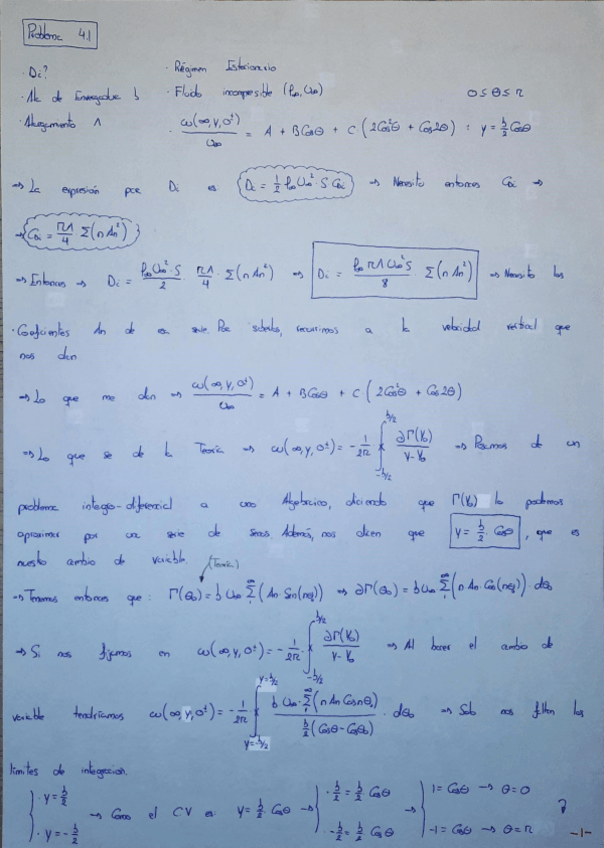 Problema 4.1
· Di?
· Régimen Estacionario
· Ala de Envergadura b
· Fluido incompresible (ρ∞, U∞)
0 ≤ θ ≤ π
· Alargamiento Λ
· ω(∞, y, 0±)/U∞ = A + B Cosθ + C (2Cos²θ + Cos2θ) : y = b/2 Cosθ
⇒ La expresión para Di es Di = 1/2 ρ∞ U∞² · S CDi ⇒ Necesito entonces CDi ⇒
⇒ CDi = πΛ/4 Σ(n An²)
⇒ Entonces ⇒ Di = ρ∞ U∞² · S/2 · πΛ/4 · Σ(n An²) ⇒ Di = ρ∞ πΛ U∞² S/8 · Σ(n An²) ⇒ Necesito los
· Coeficientes An de esa serie. Para saberlos, recurrimos a la velocidad vertical que
nos dan
⇒ Lo que me dan ⇒ ω(∞, y, 0±)/U∞ = A + B Cosθ + C (2Cos²θ + Cos2θ)
⇒ Lo que se de la Teoría ⇒ ω(∞, y, 0±) = - 1/2π ∫ -b/2 b/2 ∂Γ(y₀)/y-y₀ ⇒ Pasamos de un
problema integro-diferencial a uno Algebraico, diciendo que Γ(y₀) la podemos
aproximar por una serie de senos. Además, nos dicen que y = b/2 · Cosθ , que es
nuestro cambio de variable.
(Teoría)
⇒ Tenemos entonces que : Γ(θ₀) = b U∞ Σ(An Sen(nθ₀)) ⇒ ∂Γ(θ₀) = b U∞ Σ(n An Cos(nθ₀)) · dθ₀
⇒ Si nos fijamos en ω(∞, y, 0±) = - 1/2π ∫ -b/2 b/2 ∂Γ(y₀)/y-y₀ ⇒ Al hacer el cambio de
variable tendríamos ω(∞, y, 0±) = - 1/2π ∫ y=-b/2 y=b/2 b U∞ · Σ(n An Cos nθ₀)/b/2 (Cosθ - Cosθ₀) · dθ₀ ⇒ Solo nos faltan los
límites de integración.
· y = b/2
· y = -b/2
→ Como el CV es: y = b/2 Cosθ →
· b/2 = b/2 Cosθ
· -b/2 = b/2 Cosθ
→
1 = Cosθ → θ = 0
-1 = Cosθ → θ = π
-1-